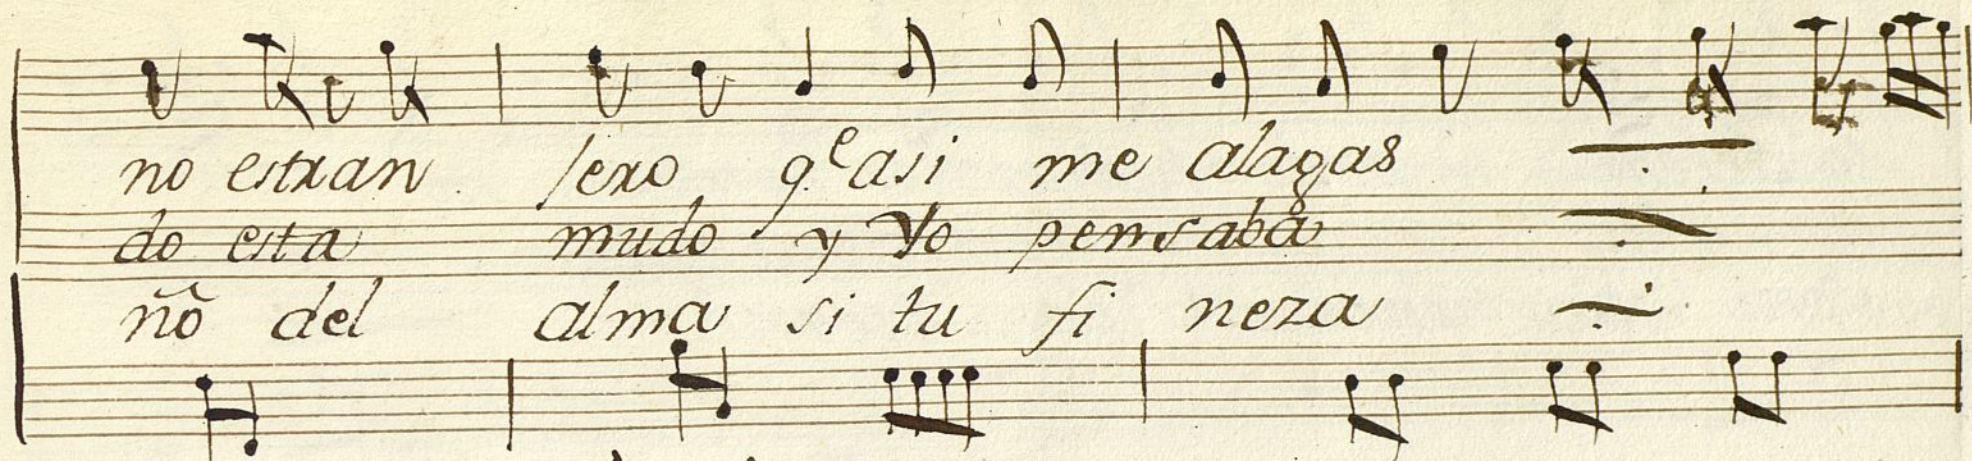 no estran jero qe asi me alagas
do esta mudo y Yo pensaba
ño del alma si tu fi neza